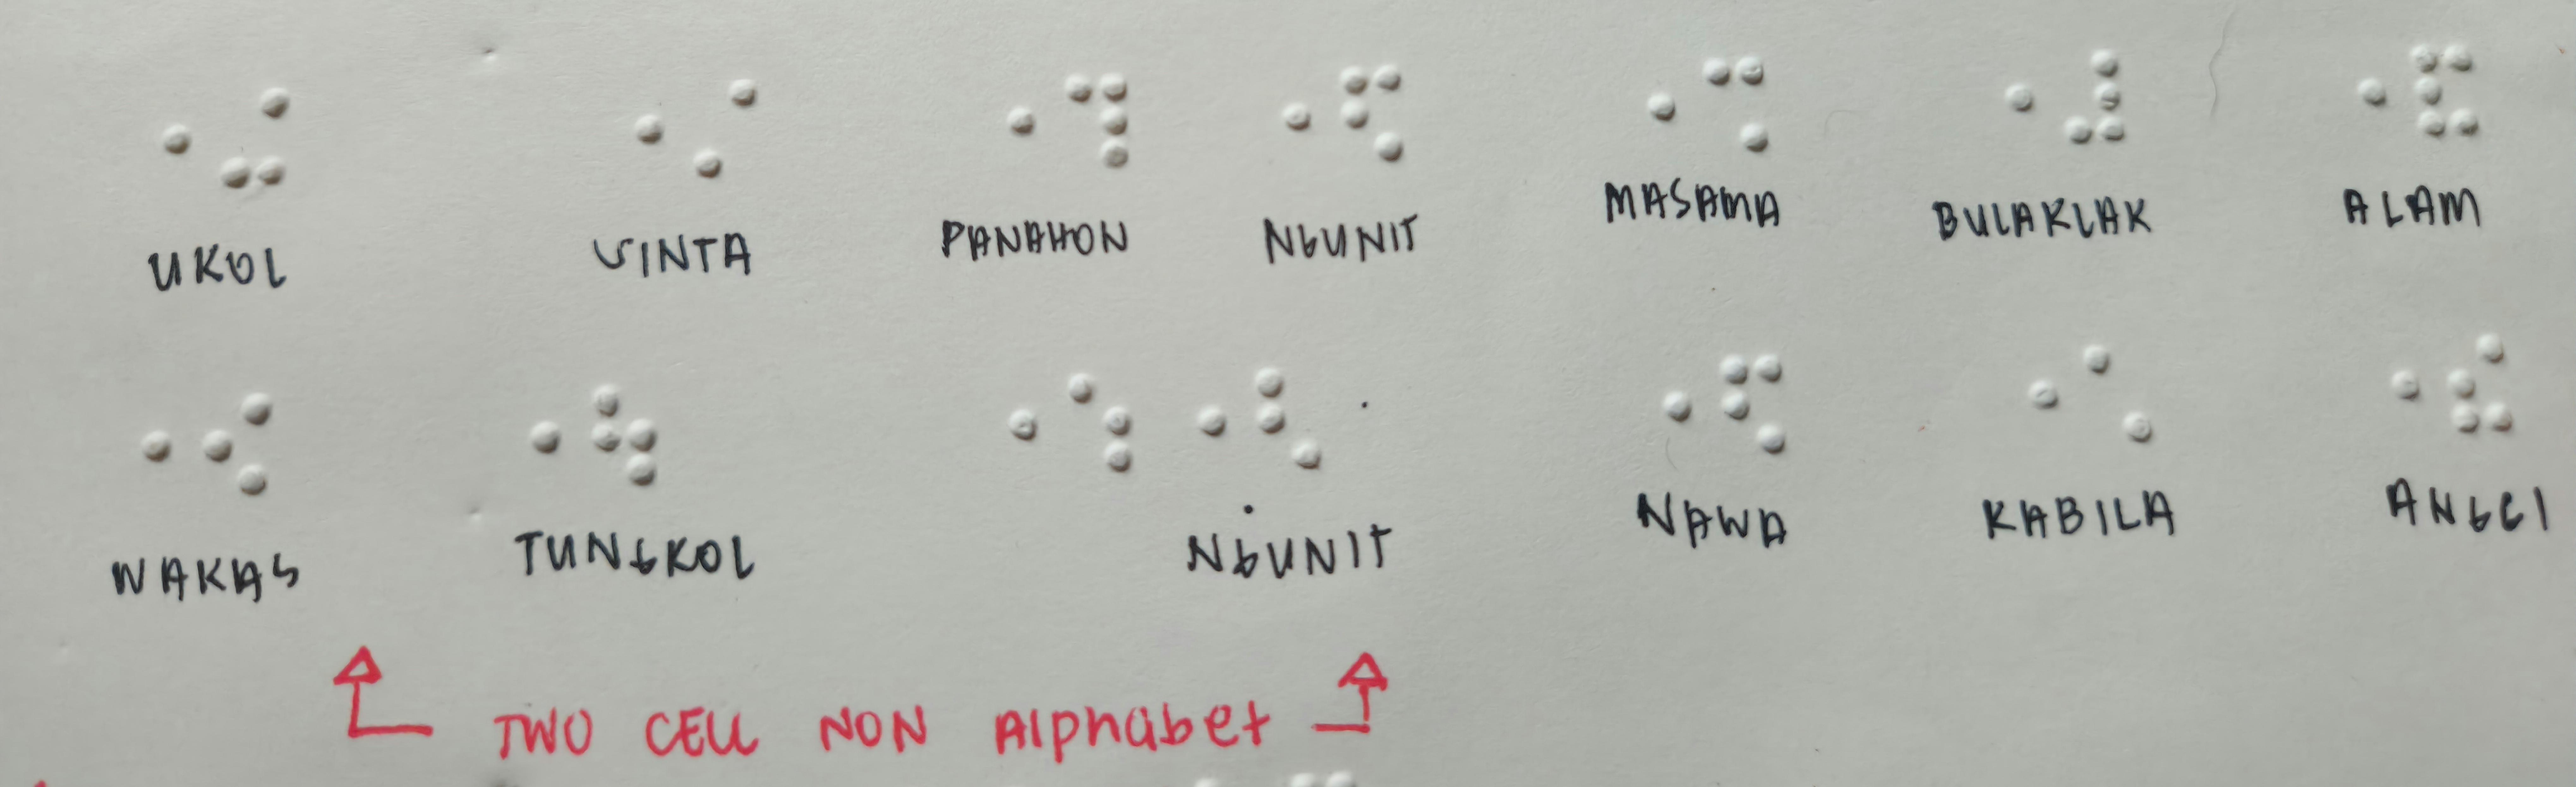 UKOL VINTA PANAHON NGUNIT MASAMA BULAKLAK ALAM
WAKAS TUNGKOL NGUNIT NAWA KABILA ANGEI
TWO CELL NON Alphabet